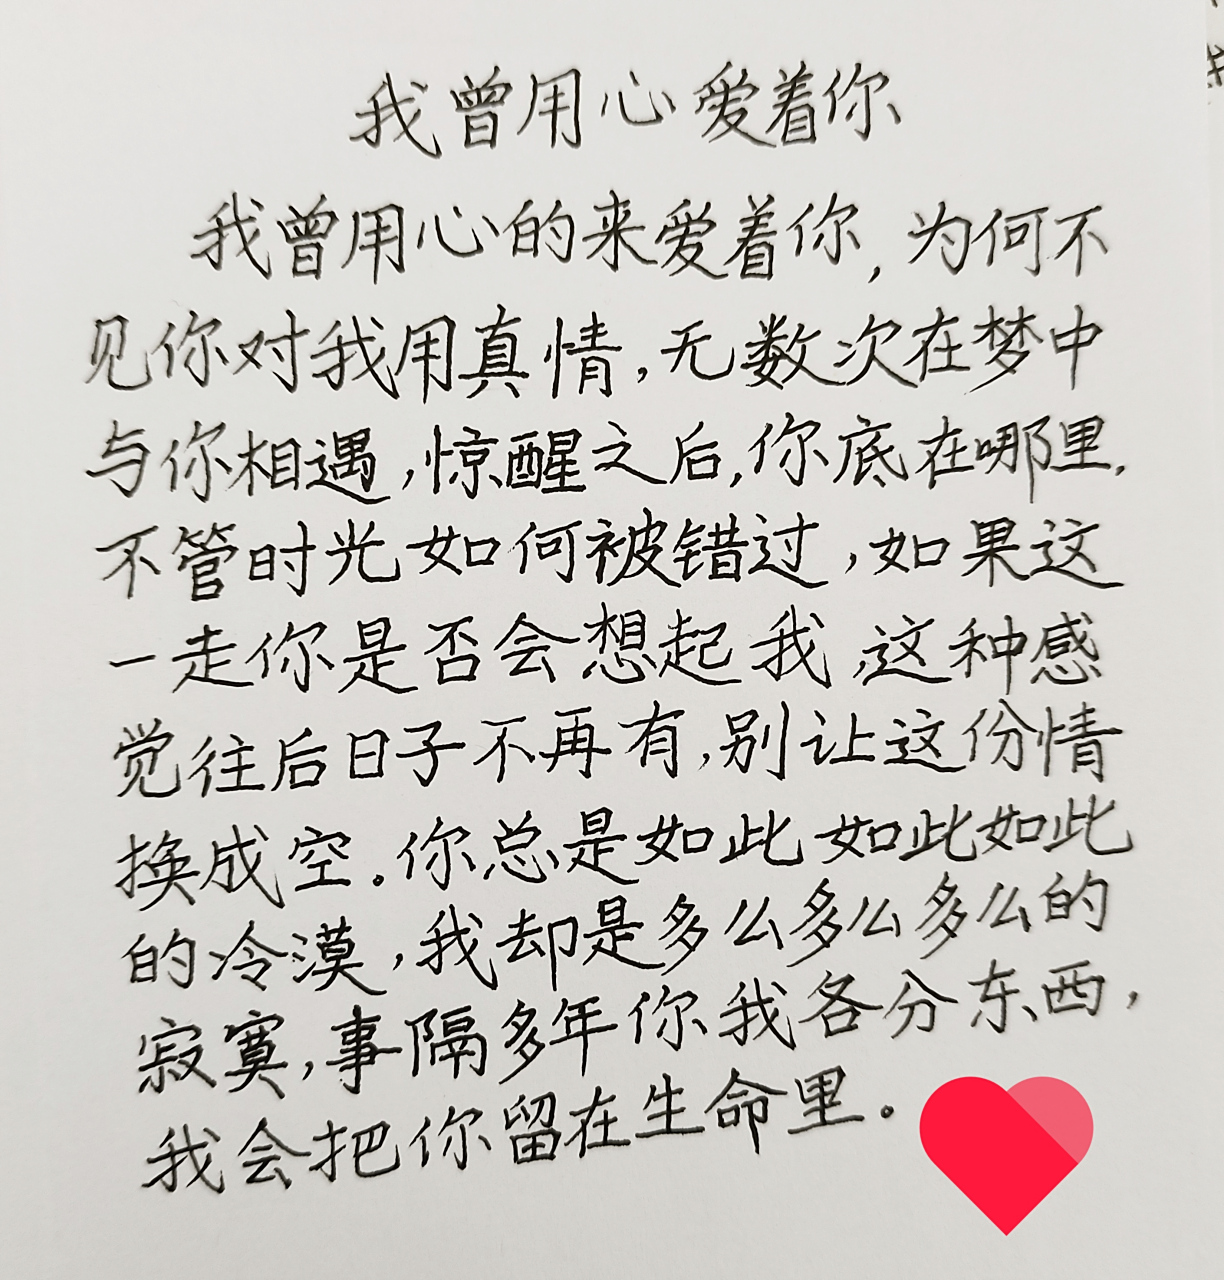 我曾用心爱着你
我曾用心的来爱着你,为何不
见你对我用真情,无数次在梦中
与你相遇,惊醒之后,你底在哪里.
不管时光如何被错过,如果这
一走你是否会想起我,这种感
觉往后日子不再有,别让这份情
换成空。你总是如此如此如此
的冷漠,我却是多么多么多么的
寂寞,事隔多年你我各分东西,
我会把你留在生命里。